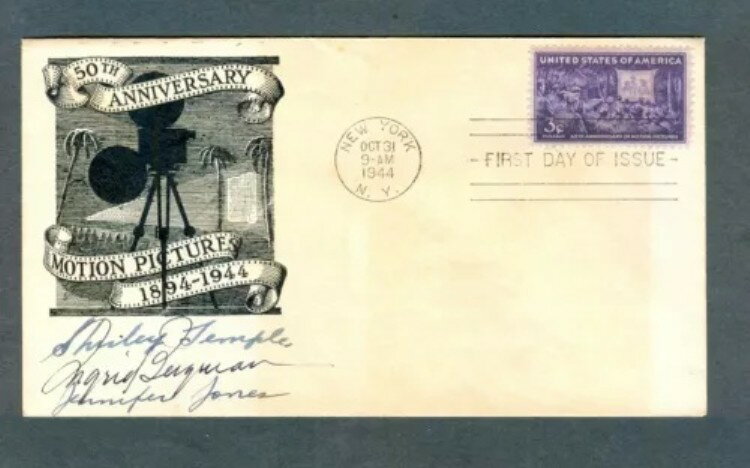 50TH
ANNIVERSARY
MOTION PICTURES
1894-1944
NEW YORK
OCT 31
9-AM
1944
N. Y.
UNITED STATES OF AMERICA
3¢
50TH ANNIVERSARY OF MOTION PICTURES
- FIRST DAY OF ISSUE -
Shirley Temple
Ingrid Bergman
Jennifer Jones